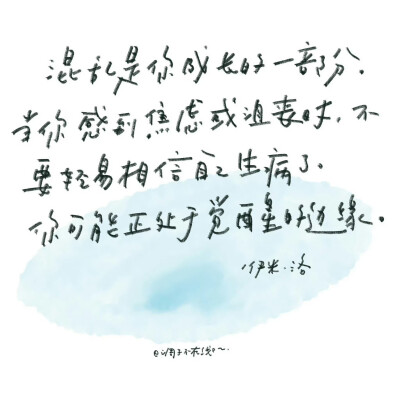 混乱是你成长的一部分.
当你感到焦虑或沮丧时,不
要轻易相信自己生病了.
你可能正处于觉醒的边缘。
伊米·洛